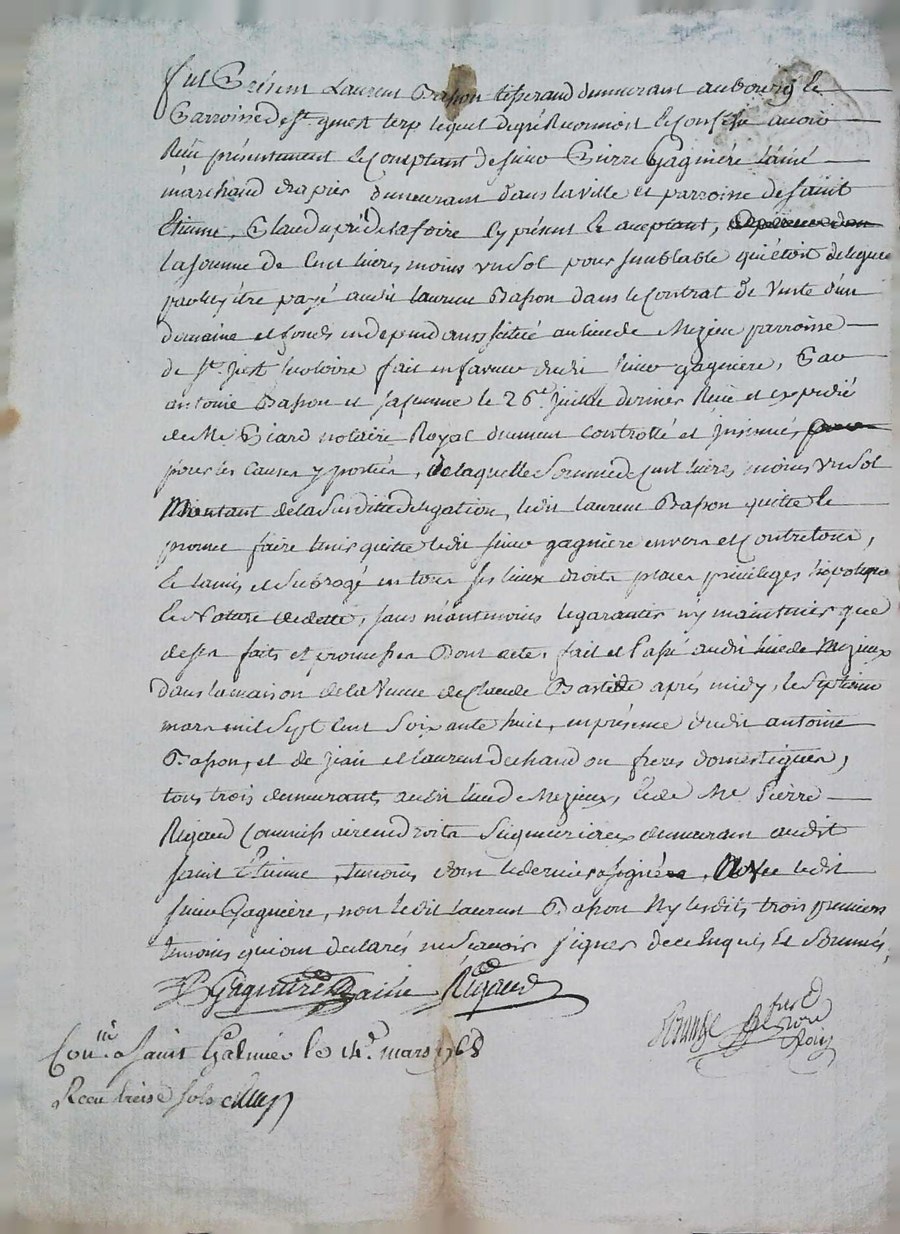 fut Présent Laurent Basson tisserand demeurant au bourg &
Parroisse de St genest lerp lequel de gré Reconnoit & Confesse avoir
Reçu présentement & Comptant de sieur Pierre Gagnière L'ainé
marchand drapier demeurant dans la ville et parroisse de saint
Etienne, Place du pré de la foire Cy présent & acceptant,
la somme de Cent livres, moins un sol pour semblable qui étoit deleguée
par luy être payé audit Laurent Basson dans le Contrat de Vente d'un
domaine et fonds independans situé au lieu de Mezieu parroisse
de St just sur loire fait en faveur dudit sieur gagniere, Par
antoine Basson et sa femme le 26e juillet dernier Reçu et expedié
de Me Piard notaire Royal duement Controllé et jnsinué,
pour les Causes y portées, de laquelle Somme de Cent livres moins un Sol
Montant de la Susditte delegation, ledit Laurent Basson quitte &
promet faire tenir quitte ledit sieur gagniere envers et Contre tous,
& la mis et Subrogé en tous ses lieux droits places privileges hipoteque
& Nature de dette, sans néantmoins le garantir ny maintenir que
de ses faits et promesses Dont acte, fait et Passé audit lieu de Mezieux
dans la maison de la Veuve de Claude après midy, le Septieme
mars mil Sept Cent Soixante huit, en présence dudit antoine
Basson, et de jean et laurent frères domestiques,
tous trois demeurants audit lieu de Mezieux, & de Me Pierre
Rigaud Commissaire en droits Seigneuriaux demeurant audit
saint Etienne, temoins dont le dernier a signé, Avec ledit
sieur Gagnière, non ledit Laurent Basson Ny lesdits trois premiers
temoins qui ont declarés ne Scavoir signer de ce Enquis & Sommés,
P Gagnière Laine Rigaud
Con.lé a saint Galmier le 14e mars 1768
Recu treise sols